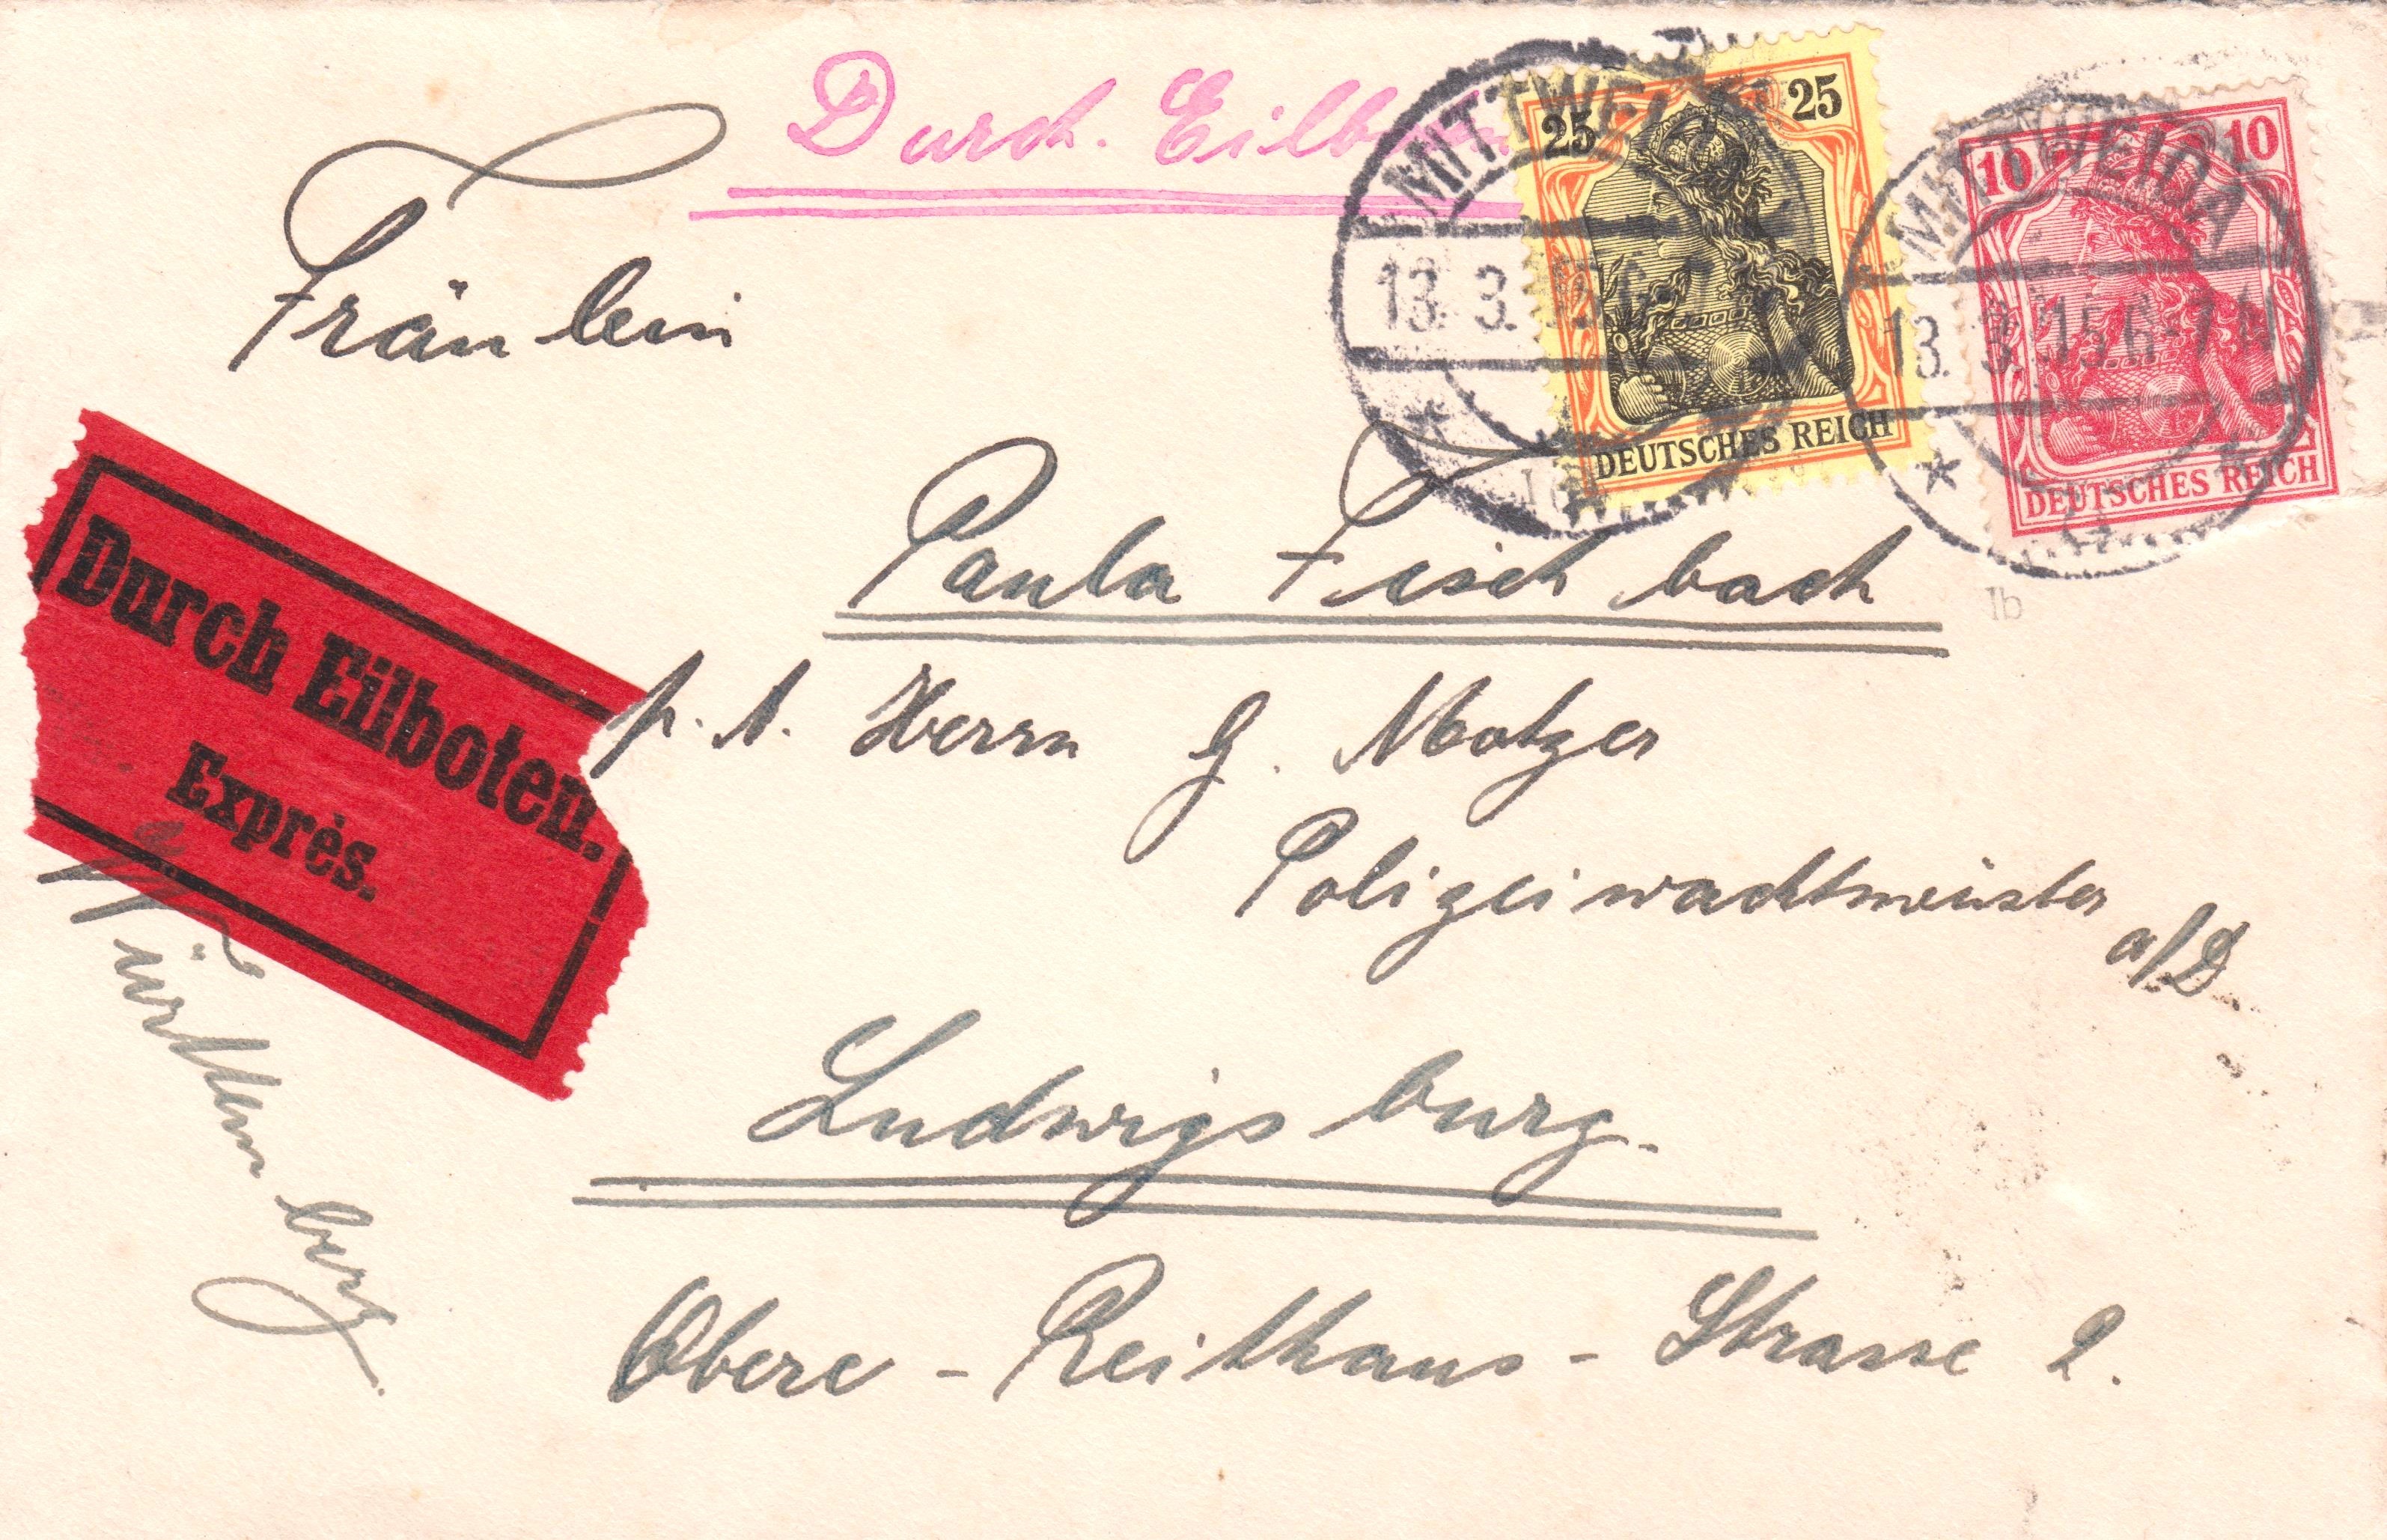 Durch Eilb
25 25
DEUTSCHES REICH
MITTWEIDA
13. 3. 15. 6-7
10 10
DEUTSCHES REICH
MITTWEIDA
13. 3. 15. 6-7 N
Ib
Fräulein
Paula Fischbach
p. A. Herrn G. Motzer
Polizeiwachtmeister
a/D
Ludwigsburg.
Obere - Reithaus - Strasse 2.
Durch Eilboten.
Exprès.
Württemberg.